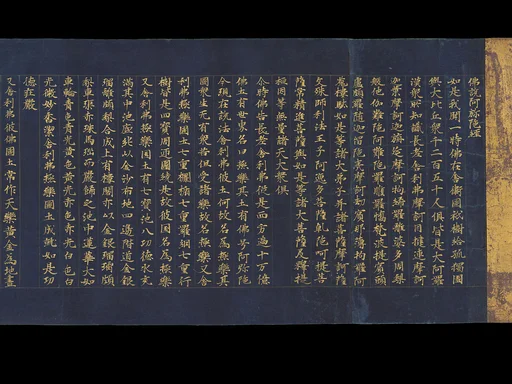 佛說阿弥陀經
如是我聞一時佛在舍衛國祇樹給孤獨園
與大比丘衆千二百五十人俱皆是大阿羅
漢衆所知識長老舍利弗摩訶目揵連摩訶
迦葉摩訶迦旃延摩訶拘絺羅離婆多周梨
槃他伽難陀阿難陀羅睺羅憍梵波提賓頭
盧頗羅墮迦留陀夷摩訶劫賓那薄拘羅阿
㝹樓馱如是等諸大弟子并諸菩薩摩訶薩
文殊師利法王子阿逸多菩薩乾陀呵提菩
薩常精進菩薩與如是等諸大菩薩及釋提
桓因等無量諸天大衆俱
尒時佛告長老舍利弗從是西方過十万億
佛土有世界名曰極樂其土有佛号阿弥陀
今現在說法舍利弗彼土何故名爲極樂其
國衆生无有衆苦但受諸樂故名極樂又舍
利弗極樂國土七重欄楯七重羅網七重行
樹皆是四寶周迊圍繞是故彼國名爲極樂
又舍利弗極樂國土有七寶池八功德水充
滿其中池底純以金沙布地四邊階道金銀
瑠璃頗梨合成上有樓閣亦以金銀瑠璃頗
梨車磲赤珠馬瑙而嚴飾之池中蓮華大如
車輪青色青光黃色黃光赤色赤光白色白
光微妙香潔舍利弗極樂國土成就如是功
德莊嚴
又舍利弗彼佛國土常作天樂黃金爲地晝